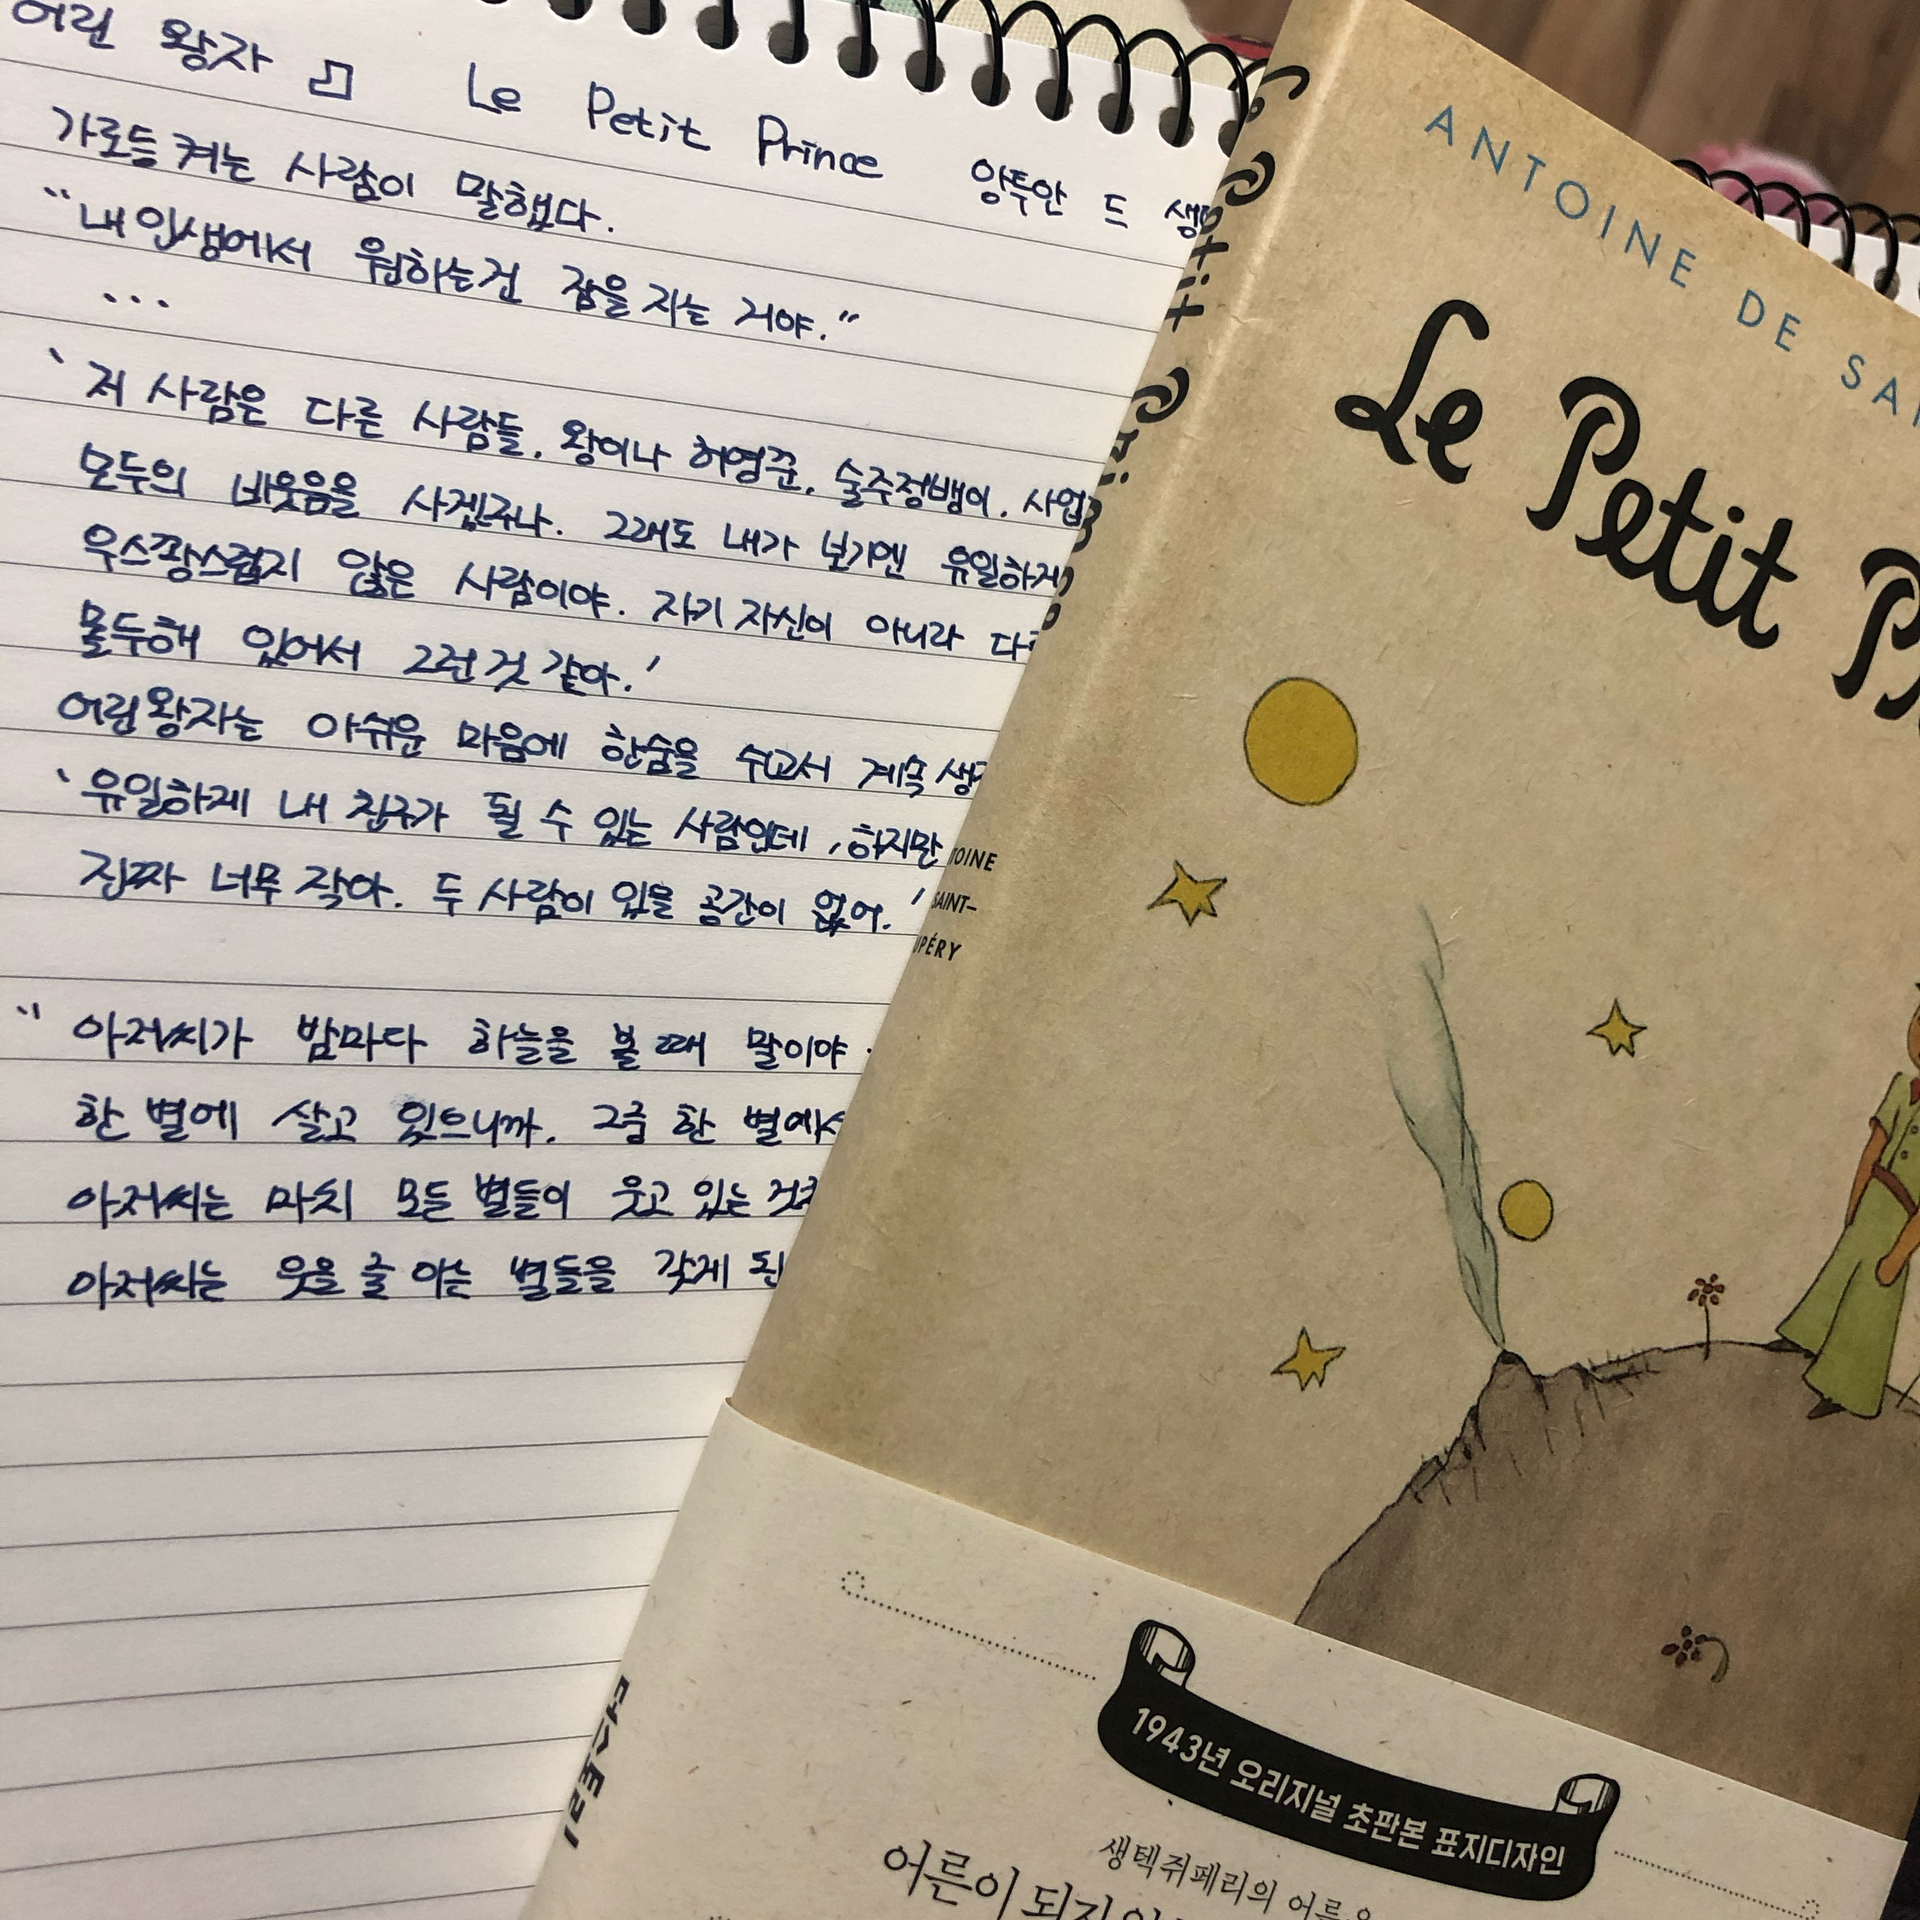 어린 왕자 Le Petit Prince 앙투안 드 생
가로등 켜는 사람이 말했다.
"내 인생에서 원하는건 잠을 자는 거야."
...
'저 사람은 다른 사람들, 왕이나 허영꾼, 술주정뱅이, 사업
모두의 비웃음을 사겠구나. 그래도 내가 보기엔 유일하게
우스꽝스럽지 않은 사람이야. 자기 자신이 아니라
몰두해 있어서 그런 것 같아.'
어린왕자는 아쉬운 마음에 한숨을 쉬고서 계속
'유일하게 내 친구가 될 수 있는 사람인데, 하지만
진짜 너무 작아. 두 사람이 있을 공간이 없어.'
"아저씨가 밤마다 하늘을 볼 때 말이야.
한 별에 살고 있으니까, 그중 한 별에서
아저씨는 마치 모든 별들이 웃고 있는
아저씨는 웃을 줄 아는 별들을 갖게 된
Le Petit Prince
OINE
SAINT-
UPÉRY
더스토리
ANTOINE DE SAI
Le Petit Pr
1943년 오리지널 초판본 표지디자인
생텍쥐페리의
어른이 되지